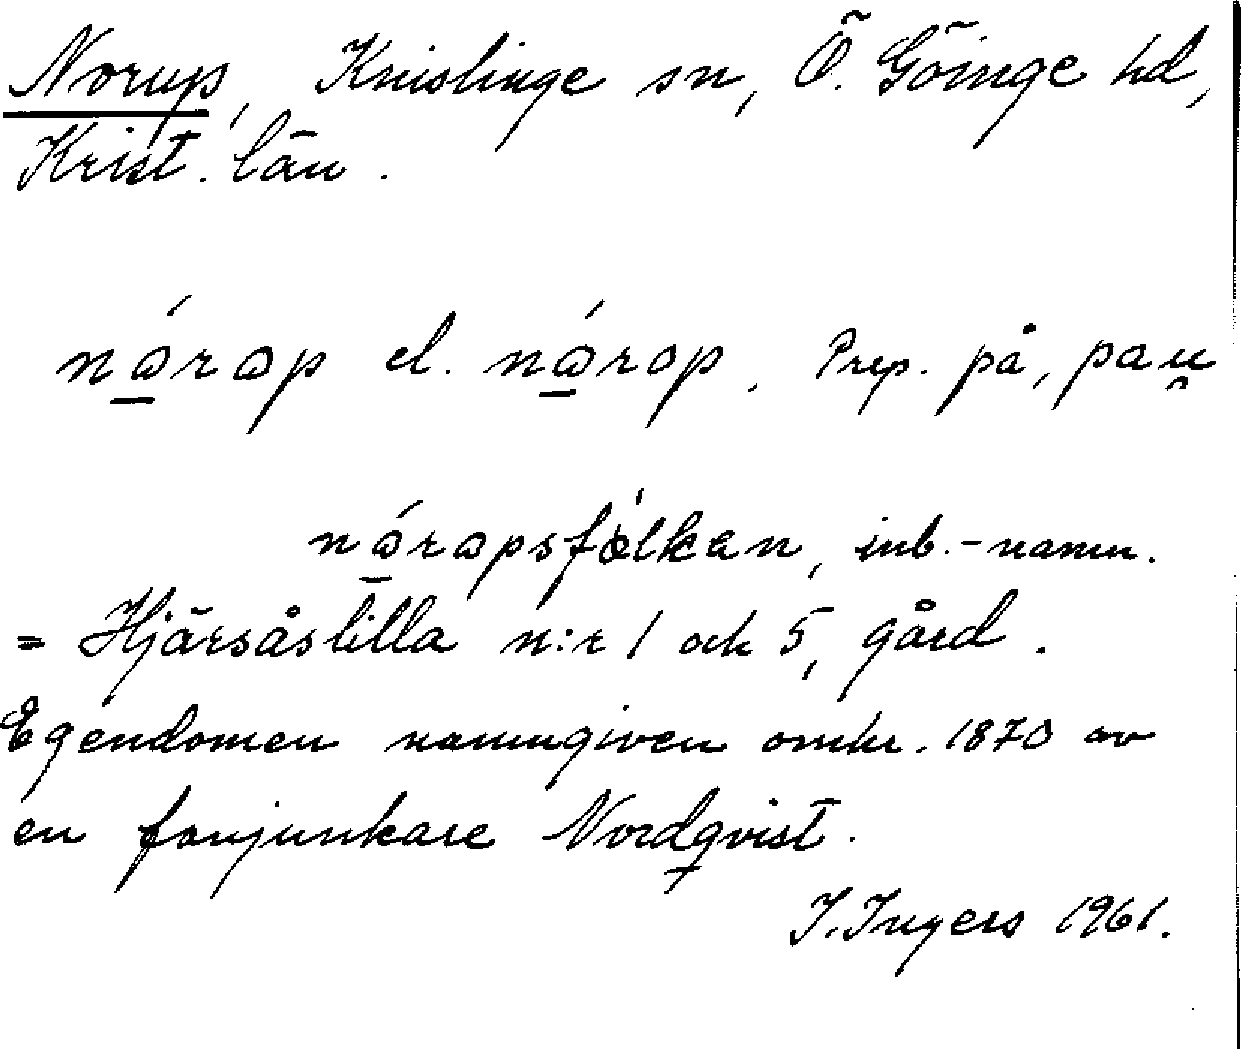 Norup, Knislinge sn, Ö. Göinge hd,
Krist. län.
nárap el. nárop. Prep. på, pau̯
nárapsfólkan, inb.-namn.
= Hjärsåslilla n:r 1 och 5, gård.
Egendomen namngiven omkr. 1870 av
en fanjunkare Nordqvist.
I. Ingers 1961.